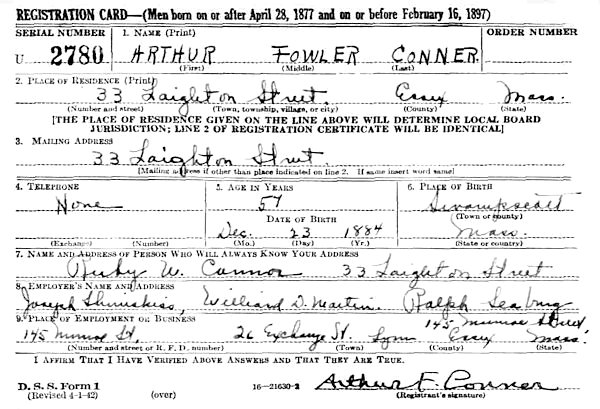 REGISTRATION CARD—(Men born on or after April 28, 1877 and on or before February 16, 1897)
SERIAL NUMBER 1. NAME (Print) ORDER NUMBER
U 2780 ARTHUR FOWLER CONNER
(First) (Middle) (Last)
2. PLACE OF RESIDENCE (Print)
33 Laighton Street Essex Mass.
(Number and street) (Town, township, village, or city) (County) (State)
[THE PLACE OF RESIDENCE GIVEN ON THE LINE ABOVE WILL DETERMINE LOCAL BOARD
JURISDICTION; LINE 2 OF REGISTRATION CERTIFICATE WILL BE IDENTICAL]
3. MAILING ADDRESS
33 Laighton Street.
[Mailing address if other than place indicated on line 2. If same insert word same]
4. TELEPHONE 5. AGE IN YEARS 6. PLACE OF BIRTH
None 57 Swampscott
DATE OF BIRTH (Town or county)
Dec. 23 1884 Mass.
(Exchange) (Number) (Mo.) (Day) (Yr.) (State or country)
7. NAME AND ADDRESS OF PERSON WHO WILL ALWAYS KNOW YOUR ADDRESS
W. Connor 33 Laighton Street
8. EMPLOYER'S NAME AND ADDRESS
Joseph William D. Martin. Ralph
9. PLACE OF EMPLOYMENT OR BUSINESS 145 Munroe Street
145 Munroe St. 26 Exchange St. Lynn Essex Mass.
(Number and street or R. F. D. number) (Town) (County) (State)
I AFFIRM THAT I HAVE VERIFIED ABOVE ANSWERS AND THAT THEY ARE TRUE.
D. S. S. Form 1 16—21630-2 Arthur F. Conner
(Revised 4-1-42) (over) (Registrant's signature)